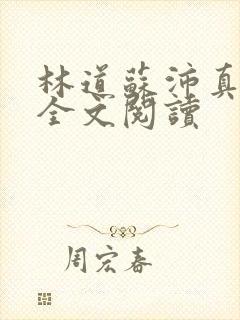 林道蘇沛真
全文閱讀
周宏春